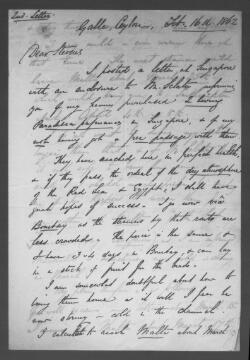 2nd. Letter
Galle, Ceylon, Feb. 16th. 1862
Dear Stevens
I posted a letter at Singapore
with an enclosure to Mr. Sclater informing
you of my having purchased 2 living
Paradisea papuanas in Singapore, & of my
having got a free passage with them
They have reached here in perfect health,
& if they pass the ordeal of the dry atmosphere
of the Red Sea & Egypt, I shall have
great hopes of success. I go now via
Bombay as the steamers by that route are
less crowded. The price is the same &
I have 3-4 days in Bombay, & can lay
in a stock of fruit for the birds.
I am somewhat doubtful about how to
bring them home as it will I fear be
now strong — cold in the channel.
I calculate to reach Malta about March